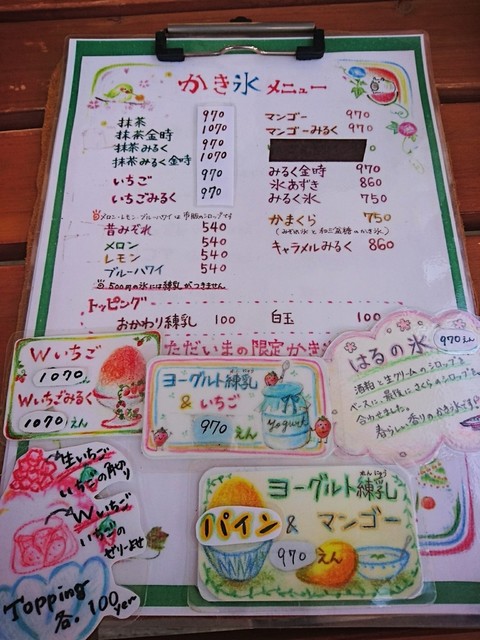 かき氷 メニュー
抹茶 970
抹茶金時 1070
抹茶みるく 970
抹茶みるく金時 1070
いちご 970
いちごみるく 970
メロン・レモン・ブルーハワイは市販のシロップです
昔みぞれ 540
メロン 540
レモン 540
ブルーハワイ 540
500円の氷には練乳がつきません
マンゴー 970
マンゴーみるく 970
みるく金時 970
氷あずき 860
みるく氷 860
かまくら 750
(みぞれ氷と和三盆糖のかき氷)
キャラメルみるく 860
トッピング
おかわり練乳 100 白玉 100
ただいまの限定かき
Wいちご
1070えん
Wいちごみるく
1070えん
ヨーグルト練乳
& いちご
970 えん
Yogurt
はるの氷 970えん
酒粕と生クリームのシロップを
ベースに、最後にさくらのシロップを
合わせました。
春らしい香りのかき氷です!
生いちご
いちごの角切り
Wいちご
いちごの
ゼリーよせ
Topping
各. 100yen
ヨーグルト練乳
れんにゅう
パイン & マンゴー
970 えん